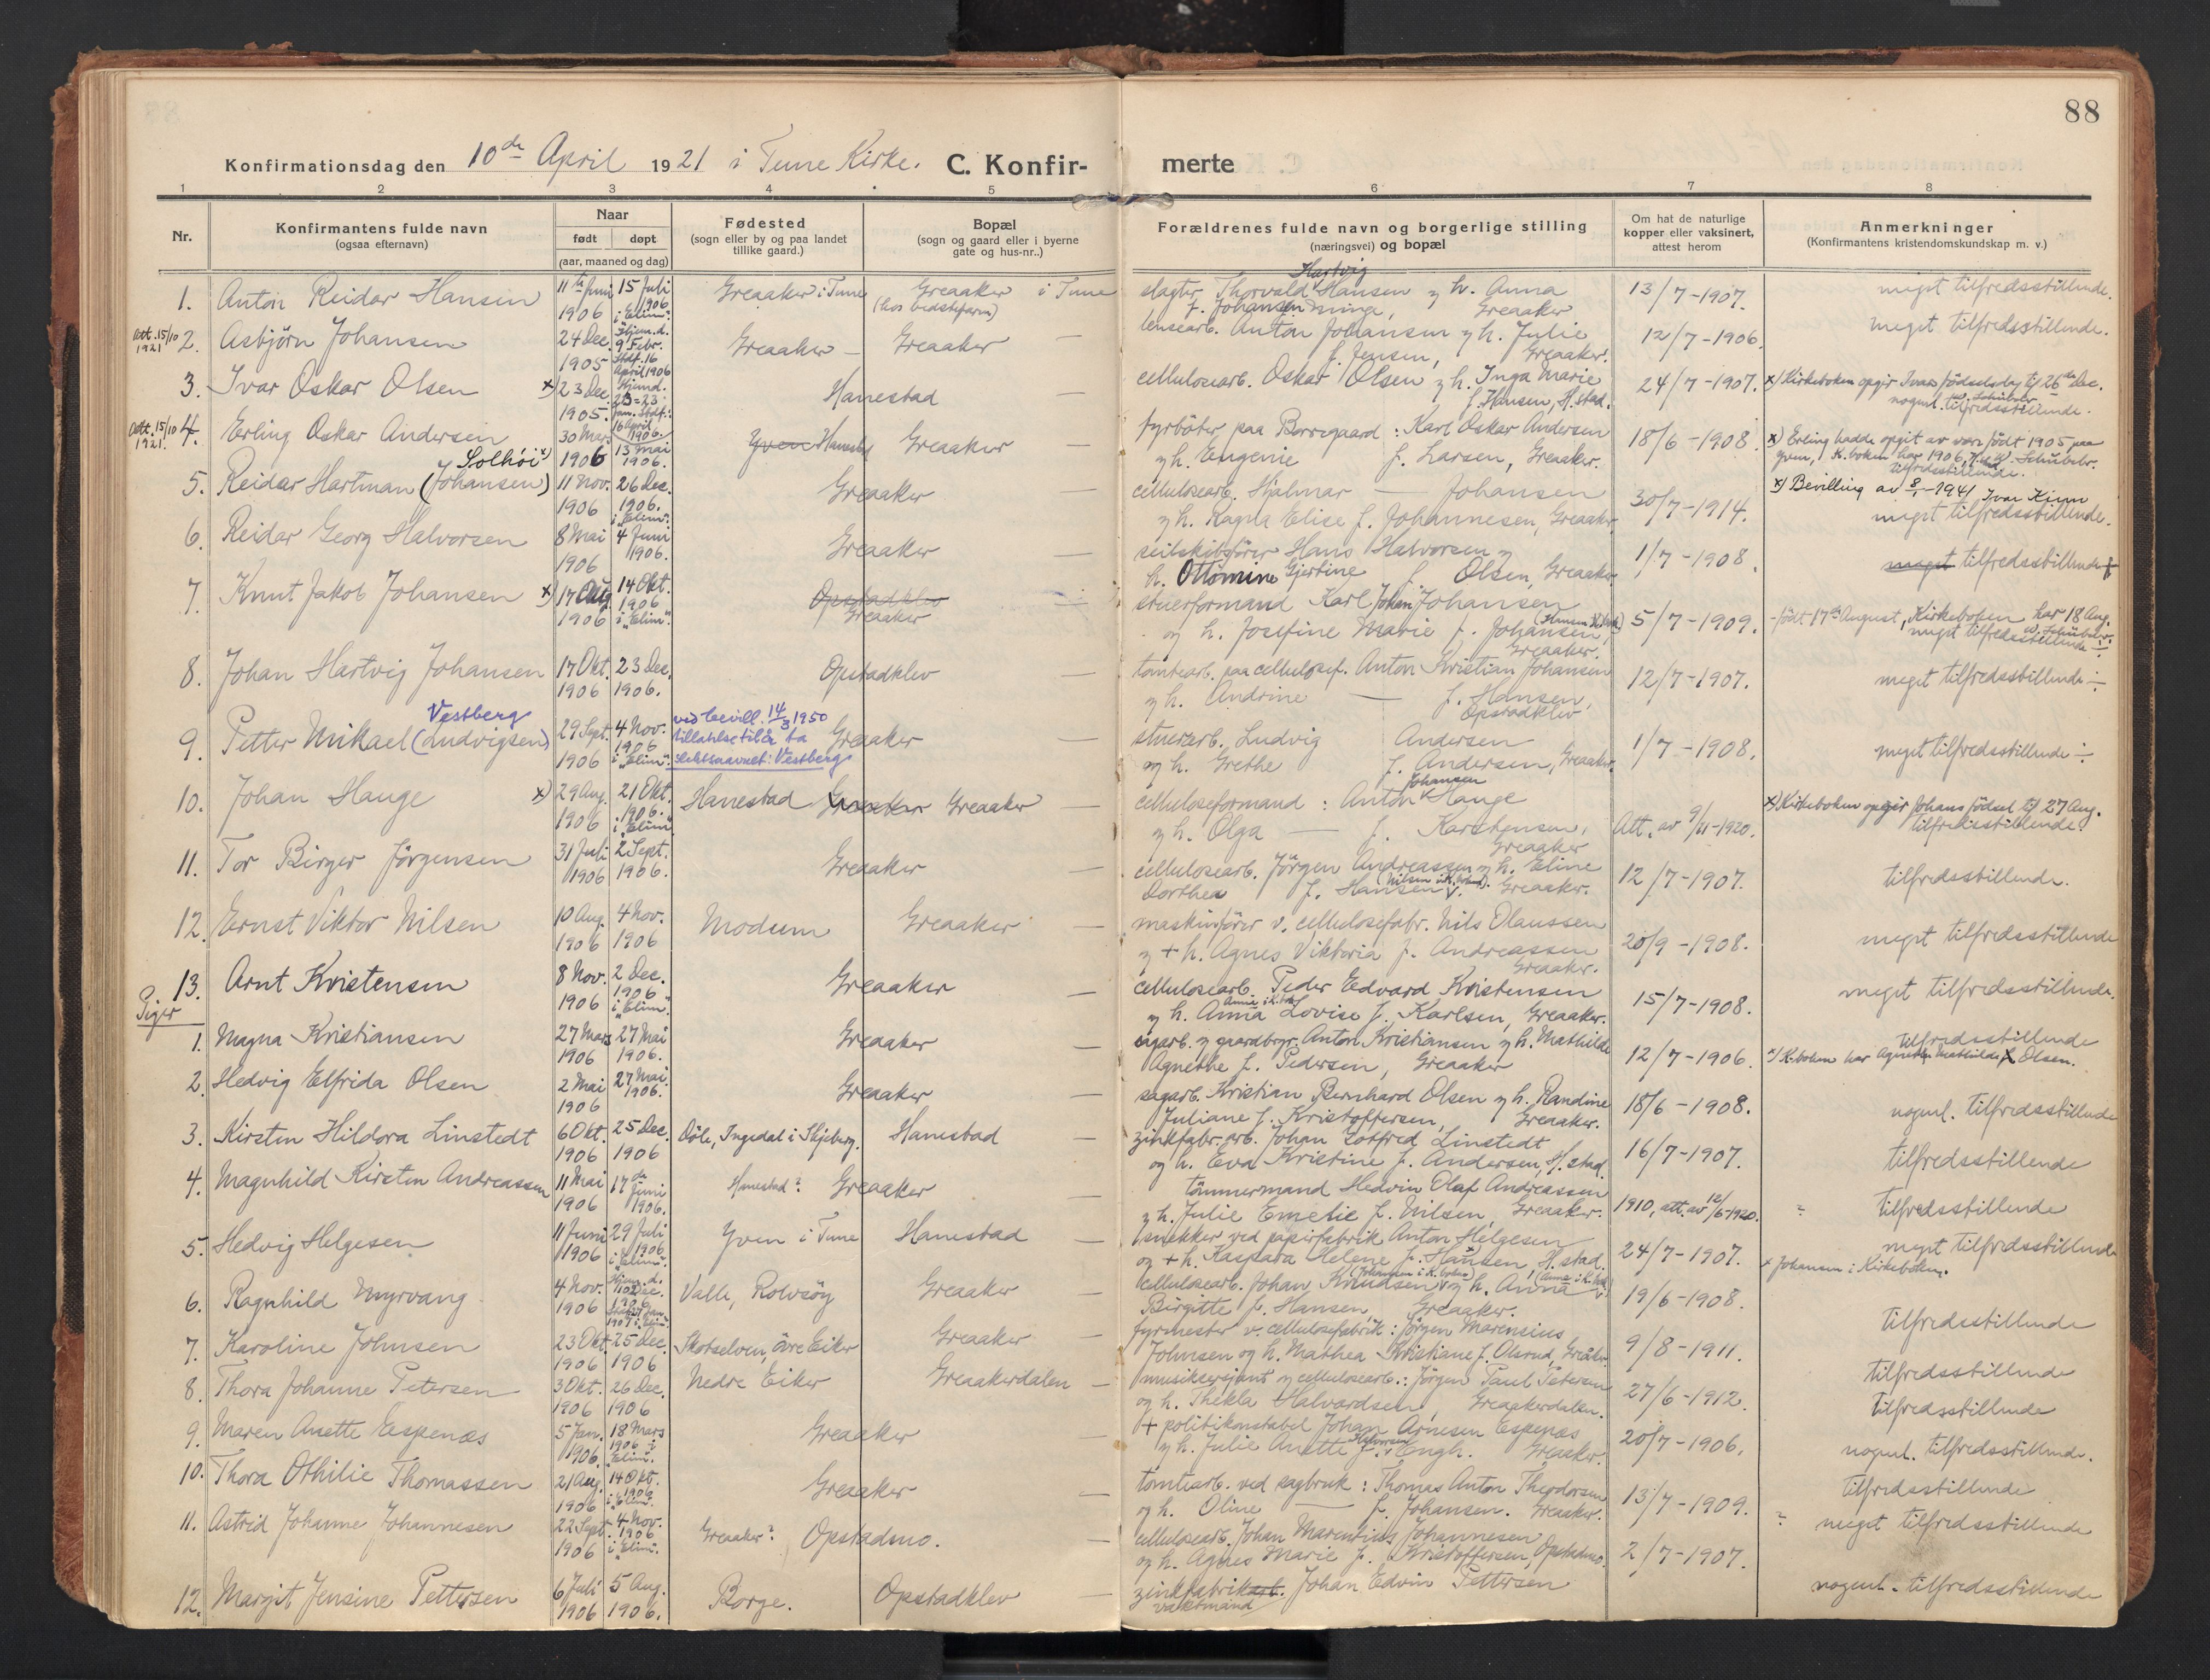 88
Konfirmationsdag den 10de April 1921 i Tune Kirke. C. Konfir-
merte
1 2 3 4 5 6 7 8
Nr.
Konfirmantens fulde navn
(ogsaa efternavn)
Naar
født døpt
(aar, maaned og dag)
Fødested
(sogn eller by og paa landet
tillike gaard.)
Bopæl
(sogn og gaard eller i byerne
gate og hus-nr..)
Forældrenes fulde navn og borgerlige stilling
(næringsvei) og bopæl
Om hat de naturlige
kopper eller vaksinert,
attest herom
Anmerkninger
(Konfirmantens kristendomskundskap m. v.)
1. Anton Reidar Hansen 11te Juni 1906 15 Juli 1906 i "Elim". Greaaker i Tune Greaaker i Tune
(hos bedstefaren)
slagter Thorvald Hartvig Hansen og h. Anna
f. Johansen, Greaaker
13/7-1907. meget tilfredsstillende.
Att. 15/10 1921 2. Asbjörn Johansen 24 Dec. 1905 Hjem.d. 9 Febr. Stdf. 16 April 1906 Greaaker — Greaaker —
lensearb. Anton Johansen og h. Julie
f. Jensen, Greaaker.
12/7-1906. meget tilfredsstillende.
3. Ivar Oskar Olsen x) 23 Dec. 1905. Hanestad —
cellulosearb. Oskar Olsen og h. Inga Marie
f. Hansen, H.stad.
24/7-1907. x) Kirkeboken opgir Ivars födselsdag til 26de Dec.
nogenl. tilfredsstillende.
Att. 15/10 1921. 4. Erling Oskar Andersen 30 Mars 1906 13 Mai 1906. Yven Hanestad Greaaker —
fyrböter paa Borregaard: Karl Oskar Andersen
og h. Eugenie f. Larsen, Greaaker.
18/6-1908 x) Erling hadde opgit av være født 1905 paa
Yven, K.boken har 1906,
tilfredsstillende.
5. Reidar Hartman (Johansen) Solhöi x) 11 Nov. 1906 26 Dec. 1906. i "Elim". Greaaker —
cellulosearb. Hjalmar — Johansen
og h. Ragna Elise f. Johannesen, Greaaker
30/7-1914. x) Bevilling av 8/1-1941 Ivar Kiem
meget tilfredsstillende.
6. Reidar Georg Halvorsen 8 Mai 1906 4 Juni 1906. Greaaker —
seilskibsförer Hans Halvorsen og
h. Ottomine Gjertine f. Olsen, Greaaker
1/7-1908. meget tilfredsstillende
7. Knut Jakob Johansen x) 17 Aug. 1906 14 Okt. 1906 i "Elim". Opstadklev
Greaaker
stuerformand Karl Johan Johansen
og h. Josefine Marie f. Johansen
Greaaker.
5/7-1909. - födt 17de August, Kirkeboken har 18 Aug.
meget tilfredsstillende ÷
8. Johan Hartvig Johansen 17 Okt. 1906 23 Dec. 1906. Opstadklev —
tomtearb. paa cellulosef. Anton Kristian Johansen
og h. Andrine — f. Hansen,
Opstadklev
12/7-1907. meget tilfredsstillende ÷
9. Petter Mikael (Ludvigsen) Vestberg 29 Sept. 1906 4 Nov. 1906 i "Elim". Greaaker —
ved bevill. 14/3 1950
tillatelse til å ta
slektsnavnet: Vestberg.
stuerarb. Ludvig Andersen
og h. Grethe f. Andersen, Greaaker.
1/7-1908. meget tilfredsstillende ÷
10. Johan Hauge x) 29 Aug. 1906 21 Okt. 1906. i "Elim" Hanestad Greaaker Greaaker —
celluloseformand: Anton Johansen Hauge
og h. Olga — f. Karstensen,
Greaaker
Att. av 9/11-1920. x) Kirkeboken opgir Johans födsel til 27 Aug.
tilfredsstillende.
11. Tor Birger Jörgensen 31 Juli 1906 2 Sept. 1906. Greaaker —
cellulosearb. Jörgen Andreassen og h. Eline
Dorthea f. Hansen (Nilsen i K.boken). Greaaker.
12/7-1907. tilfredsstillende.
12. Ernst Viktor Nilsen 10 Aug. 1906 4 Nov. 1906 Modum Greaaker —
maskinförer v. cellulosefabr. Nils Olaussen
og + h. Agnes Viktoria f. Andreassen
Greaaker.
20/9-1908. meget tilfredsstillende
13. Arnt Kristensen 8 Nov. 1906 2 Dec. 1906 i "Elim". Greaaker —
cellulosearb. Peder Edvard Kristensen
og h. Anna Lovise f. Karlsen, Greaaker.
15/7-1908. meget tilfredsstillende.
Piger
1. Magna Kristiansen 27 Mars 1906 27 Mai 1906. Greaaker —
sagarb. og gaardbryr. Anton Kristiansen og h. Mathilde
Agnethe f. Pedersen, Greaaker
12/7-1906. tilfredsstillende
x) K.boken har Agnethe Mathilde f. Olsen.
2. Hedvig Elfrida Olsen 2 Mai 1906 27 Mai 1906. Greaaker —
sagarb. Kristian Bernhard Olsen og h. Randine
Juliane f. Kristoffersen, Greaaker.
18/6-1908. nogenl. tilfredsstillende
3. Kirsten Hildora Linstedt 6 Okt. 1906 25 Dec. 1906 Döle, Ingedal i Skjeberg. Hanestad —
zinkfabr.arb. Johan Gotfred Linstedt
og h. Eva Kristine f. Andersen, H.stad.
16/7-1907. tilfredsstillende
4. Magnhild Kirsten Andreassen 11 Mai 1906 17de Juni 1906. Hanestad? Greaaker —
tömmermand Hedvin Olaf Andreassen
og h. Julie Emelie f. Nilsen, Greaaker.
1910, att. av 12/6-1920. tilfredsstillende
5. Hedvig Helgesen 11 Juni 1906 29 Juli 1906 i "Elim". Yven i Tune Hanestad —
snekker ved papirfabrik Anton Helgesen
og + h. Kaspara Helene f. Hansen, H.stad.
24/7-1907. meget tilfredsstillende
x Johansen i Kirkeboken.
6. Ragnhild Myrvang 4 Nov. 1906 Valle, Rolvsöy Greaaker —
cellulosearb. Johan Knudsen (Johansen i K.boken) og h. Anna
Birgitte f. Hansen, Greaaker.
19/6-1908. tilfredsstillende
7. Karoline Johnsen 23 Okt. 1906 25 Dec. 1906 Skotselven, övre Eiker Greaaker —
fyrmester v. cellulosefabrik: Jörgen Marensius
Johnsen og h. Mathea Kristiane f. Olsrud, Greaaker
9/8-1911. tilfredsstillende
8. Thora Johanne Petersen 3 Okt. 1906 26 Dec. 1906 Nedre Eiker Greaakerdalen —
musiksersjant og cellulosearb.: Jörgen Paul Petersen
og h. Thekla Halvardsen, Greaakerdalen.
27/6-1912. tilfredsstillende
9. Maren Anette Espenæs 5 Jan. 1906. 18 Mars 1906 i "Elim". Greaaker —
+ politikonstabel Johan Arnesen Espenæs
og h. Julie Anette f. Halvorsen Engh. Greaaker.
20/7-1906. nogenl. tilfredsstillende.
10. Thora Othilie Thomassen 21 Aug. 1906 14 Okt. 1906 i "Elim". Greaaker —
tomtearb. ved sagbruk: Thomas Anton Theodorsen
og h. Oline — f. Johansen. Greaaker.
13/7-1909. tilfredsstillende
11. Astrid Johanne Johannesen 22 Sept. 1906 4 Nov. 1906 i "Elim". Greaaker? Opstadmo.
cellulosearb. Johan Marentius Johannesen
og h. Agnes Marie f. Kristoffersen, Opstadmo.
2/7-1907. meget tilfredsstillende
12. Margit Jensine Pettersen 6 Juli 1906 5 Aug. 1906. Borge. Opstadklev —
zinkfabrikarb. Johan Edvin Pettersen
vaktmand
nogenl. tilfredsstillende